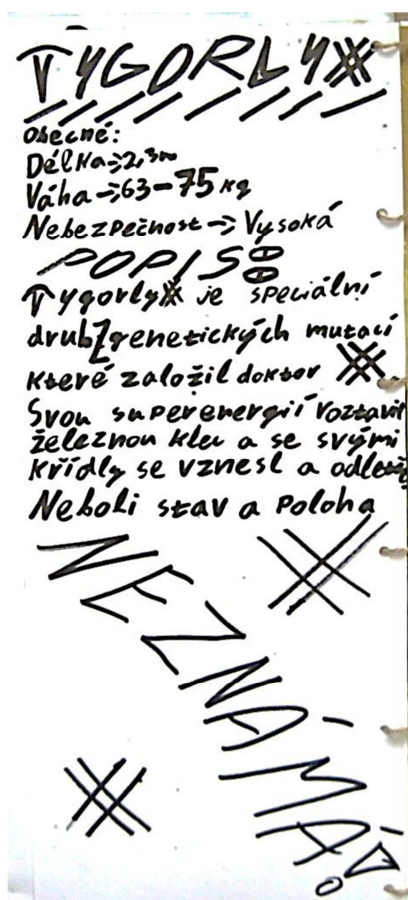 TYGORLY
Obecné:
Délka→2,3m
Váha→63-75kg
Nebezpečnost→Vysoká
POPIS:
Tygorly je speciální
druh z genetických mutací
které založil doktor
Svou superenergií roztavil
železnou klec a se svými
křídly se vznesl a odletěl
Neboli stav a Poloha
NEZNÁMÁ!